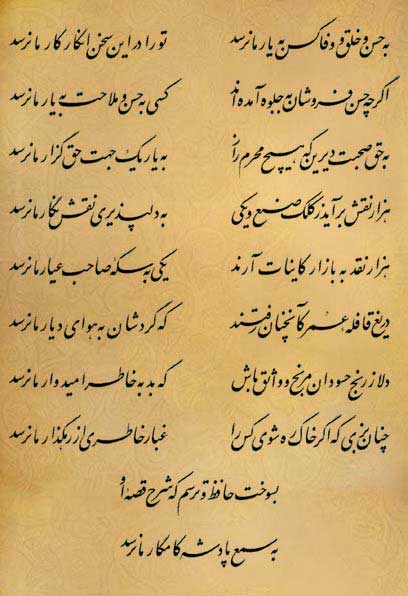 به حسن و خلق و وفا کس به یار ما نرسد تو را در این سخن انکار کار ما نرسد
اگرچه حسن فروشان به جلوه آمده‌اند کسی به حسن و ملاحت به یار ما نرسد
به حق صحبت دیرین که هیچ محرم راز به یار یک جهت حق گزار ما نرسد
هزار نقش برآید ز کلک صنع و یکی به دلپذیری نقش نگار ما نرسد
هزار نقد به بازار کاینات آرند یکی به سکه صاحب عیار ما نرسد
دریغ قافله عمر کآنچنان رفتند که گردشان به هوای دیار ما نرسد
دلا ز رنج حسودان مرنج و واثق باش که بد به خاطر امیدوار ما نرسد
چنان بزی که اگر خاک ره شوی کس را غبار خاطری از رهگذار ما نرسد
بسوخت حافظ و ترسم که شرح قصه او
به سمع پادشه کامگار ما نرسد